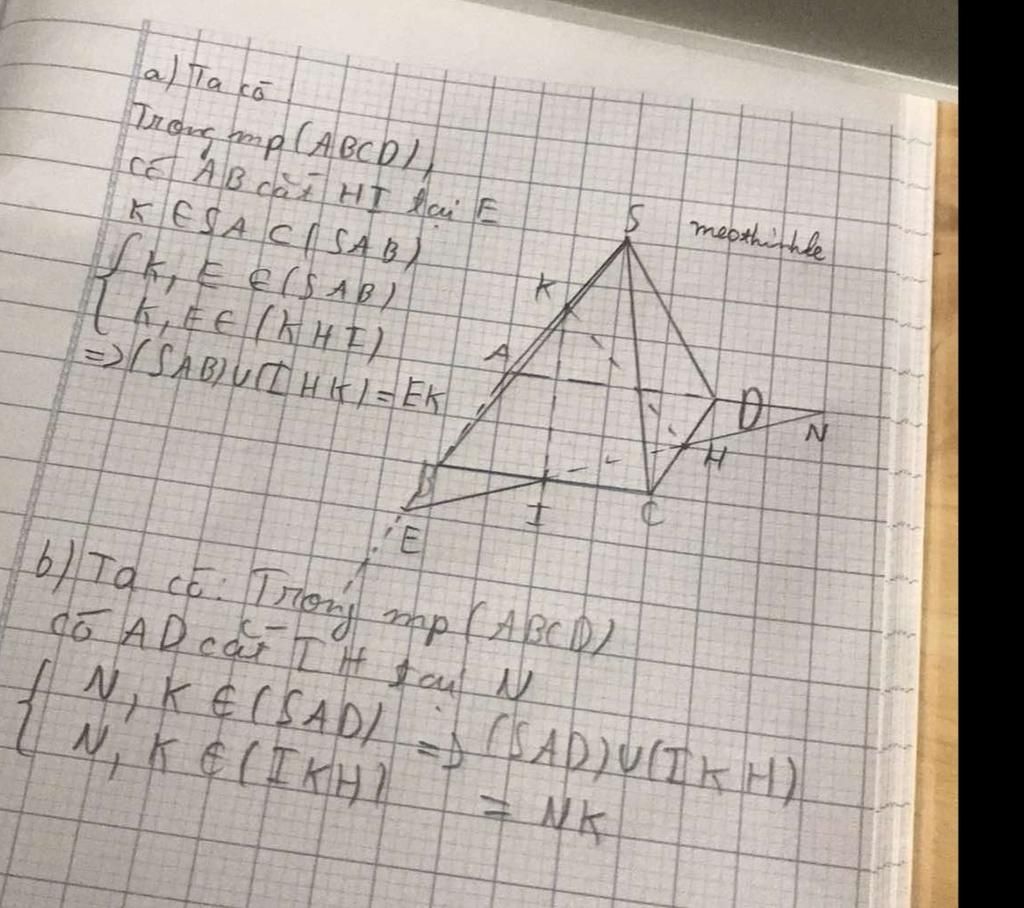 a) Ta có
Trong mp (ABCD),
có AB cắt HI tại E
K ∈ SA ⊂ (SAB)
{ K, E ∈ (SAB)
K, E ∈ (KHI)
=> (SAB) ∪ (IHK) = EK
S
meothichle
K
A
D
N
H
B
I
C
E
b) Ta có: Trong mp (ABCD)
có AD cắt IH tại N
{ N, K ∈ (SAD)
N, K ∈ (IKH)
=> (SAD) ∪ (IKH)
= NK